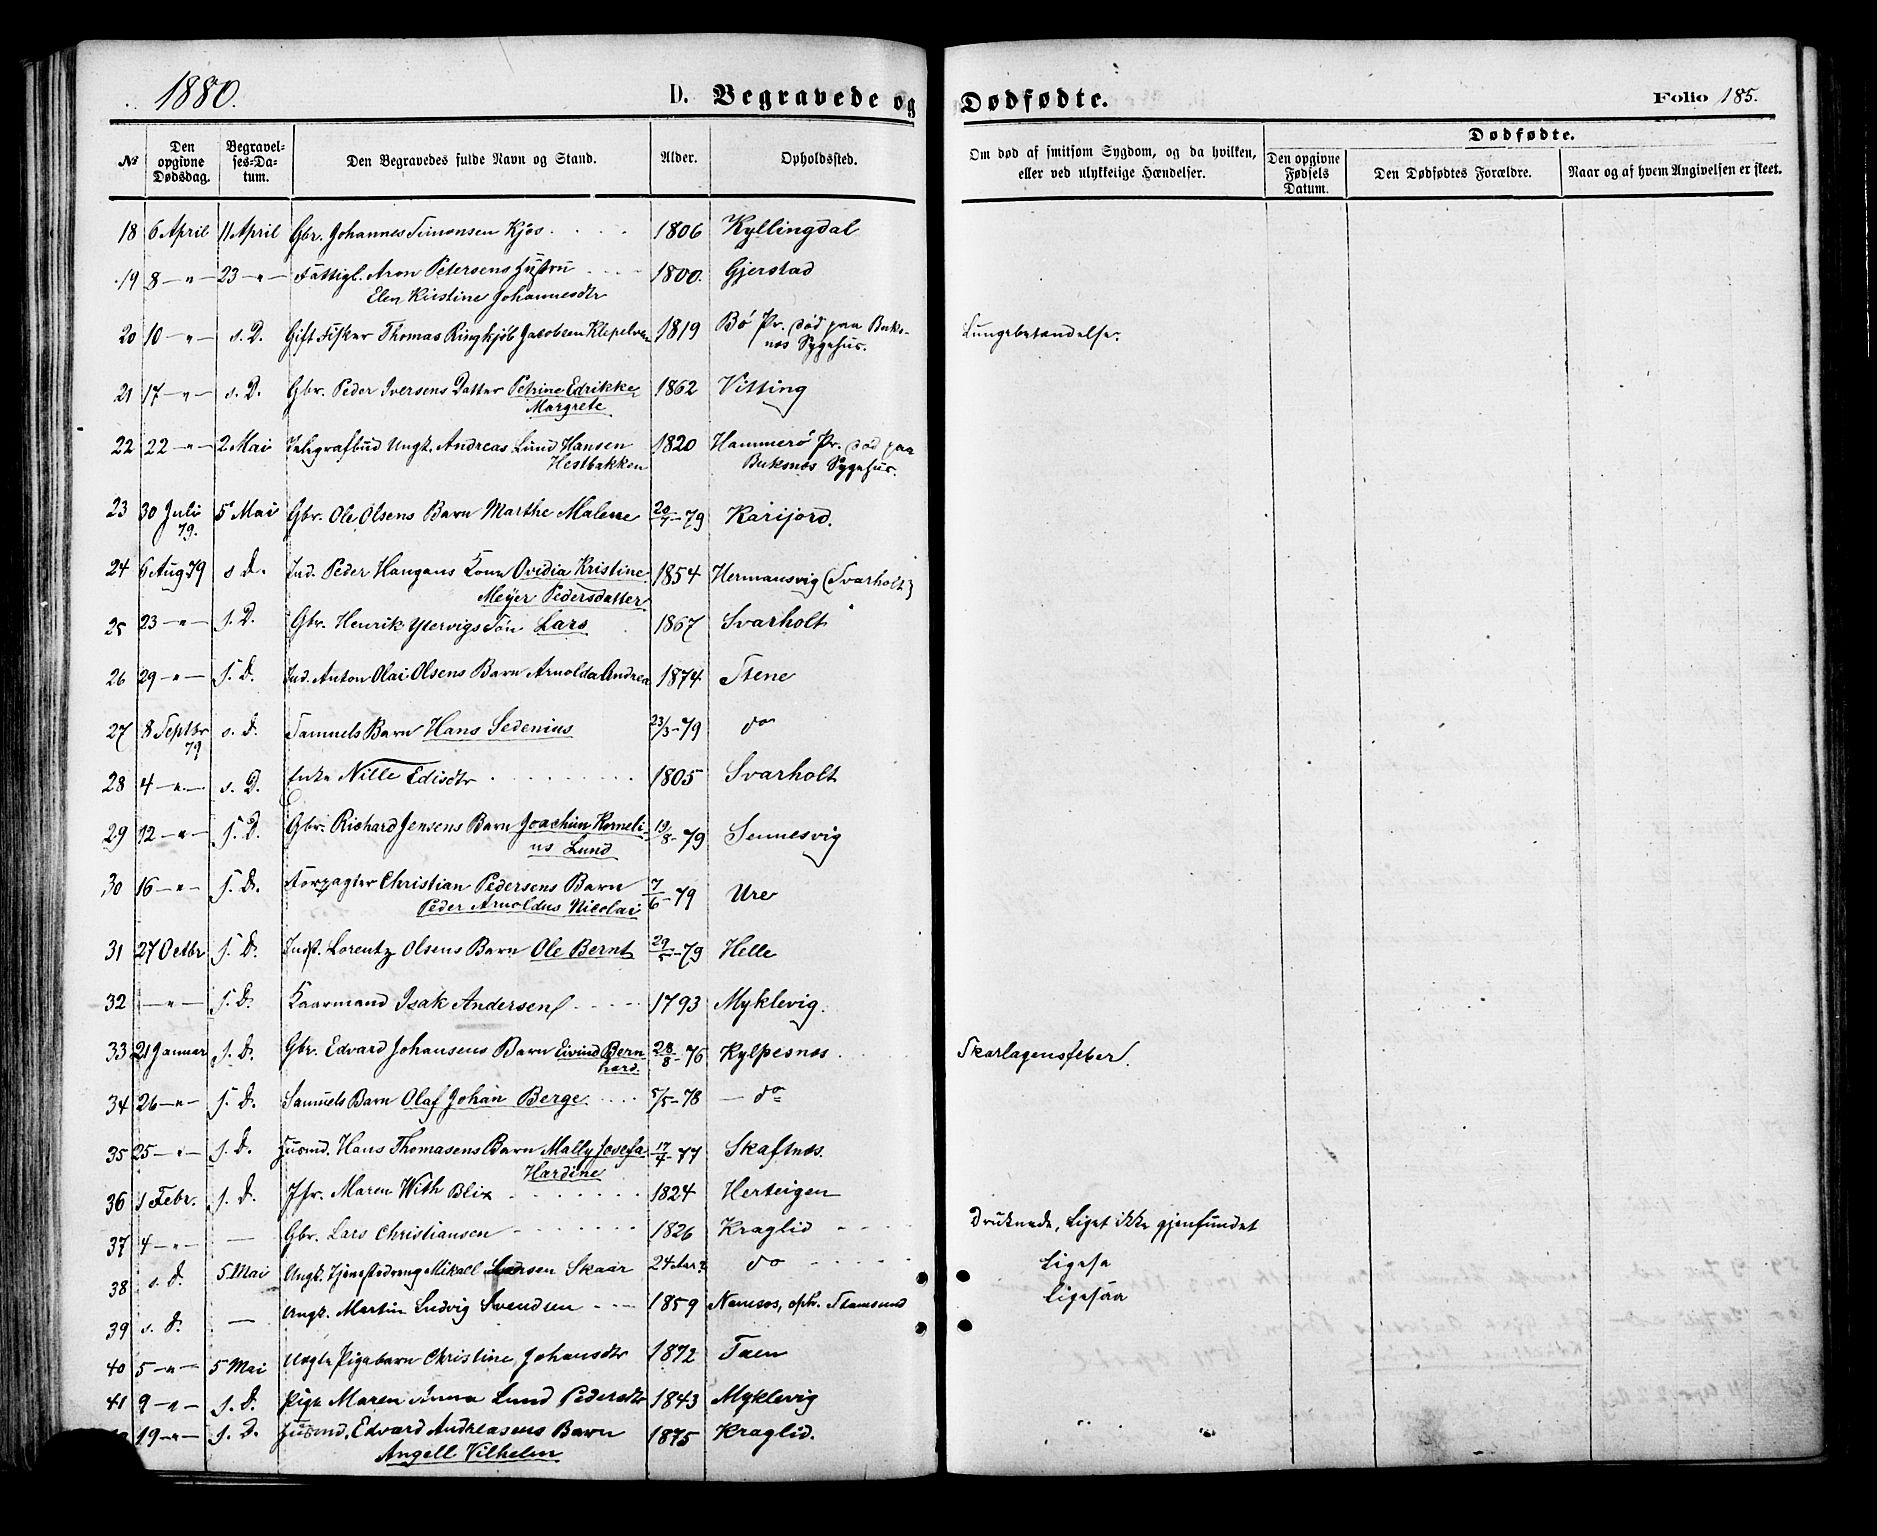 1880.
D. Begravede og Dødfødte.
Folio 185.
№
Den opgivne Dødsdag.
Begravelses-Datum.
Den Begravedes fulde Navn og Stand.
Alder.
Opholdssted.
Om død af smitsom Sygdom, og da hvilken, eller ved ulykkelige Hændelser.
Dødfødte.
Den opgivne Fødsels Datum.
Den Dødfødtes Forældre.
Naar og af hvem Angivelsen er skeet.
18 6 April 11 April Gbr. Johannes Simonsen Kjøs 1806 Kyllingdal
19 8 -"- 23 -"- Fattigl. Aron Petersens Hustru 1800. Gjerstad
Elen Kirstine Johannesdtr
20 10 -"- s. D. Gift Fisker Thomas Ringkjøb Jacobsen 1819 Bø Pr. død paa Buks-
næs Sygehus. Lungebetændelse.
21 17 -"- s. D. Gbr. Peder Iversens Datter Petrine Edrikke 1862 Vitting
Margrete
22 22 -"- 2 Mai Telegrafbud Ungk. Andreas Lund Hansen 1820 Hammerø Pr. død paa
Hestbakken Buksnæs Sygehus.
23 30 Juli 5 Mai Gbr. Ole Olsens Barn Marthe Malene 20/7-79 Karijord.
79.
24 6 Aug 79 s D. Ind. Peder Hangans Kone Ovidia Kristine 1854 Hermansvig (Svarholt)
Meyer Pedersdatter
25 23 -"- s. D. Gbr. Henrik Ytervigs Søn Lars 1867 Svarholt
26 29 -"- s. D. Ind. Anton Olai Olsens Barn Arnolda Andrea 1874 Stene
27 8 Septbr s. D. Samuels Barn Hans Sedenius 23/3-79 do
79
28 4 -"- s. D. Enke Nille Edisdtr 1805 Svarholt
29 12 -"- s. D. Gbr. Richard Jensens Barn Joachim Korneli- 19/8-79 Sennesvig
us Lund
30 16 -"- s. D. Forpagter Christian Pedersens Barn 7/6-79 Ure
Peder Arnoldus Nicolai
31 27 Octbr s. D. Indst. Lorentz Olsens Barn Ole Bernt 29/5-79 Helle
32 -"- s. D. Kaarmand Isak Andersen 1793 Myklevig.
33 21 Januar s. D. Gbr. Edvard Johansens Barn Eivind Bern 28/8-76 Kylpesnæs
hard. Skarlagensfeber.
34 26 -"- s. D. Samuels Barn Olaf Johan Berge 5/5-78 - do
35 25 -"- s. D. Husmd. Hans Thomasens Barn Mally Josefa 17/4-77 Skaftnæs.
Hardine
36 1 Febr. s. D. Jfr. Maren With Blix 1824 Herteigen
37 4 -"- — Gbr. Lars Christiansen 1826 Kraglid Druknede, Liget ikke gjenfundet
38 s. D. 5 Mai Ungk. Tjenestedreng Mikall Larsen Skaar 24 Aar? do Ligesa
39 s. D. — Ungk. Martin Ludvig Svendsen 1859 Namsos, oph. Stamsund Ligesaa
40 5 -"- 5 Mai Ungte Pigebarn Christine Johansdtr 1872 Taen
41 9 -"- s. D. Pige Maren Anna Lund Pedersdtr 1843 Myklevig
19 -"- s. D. Husmd. Edvard Andreasens Barn 1875 Kraglid.
Angell Vilhelm